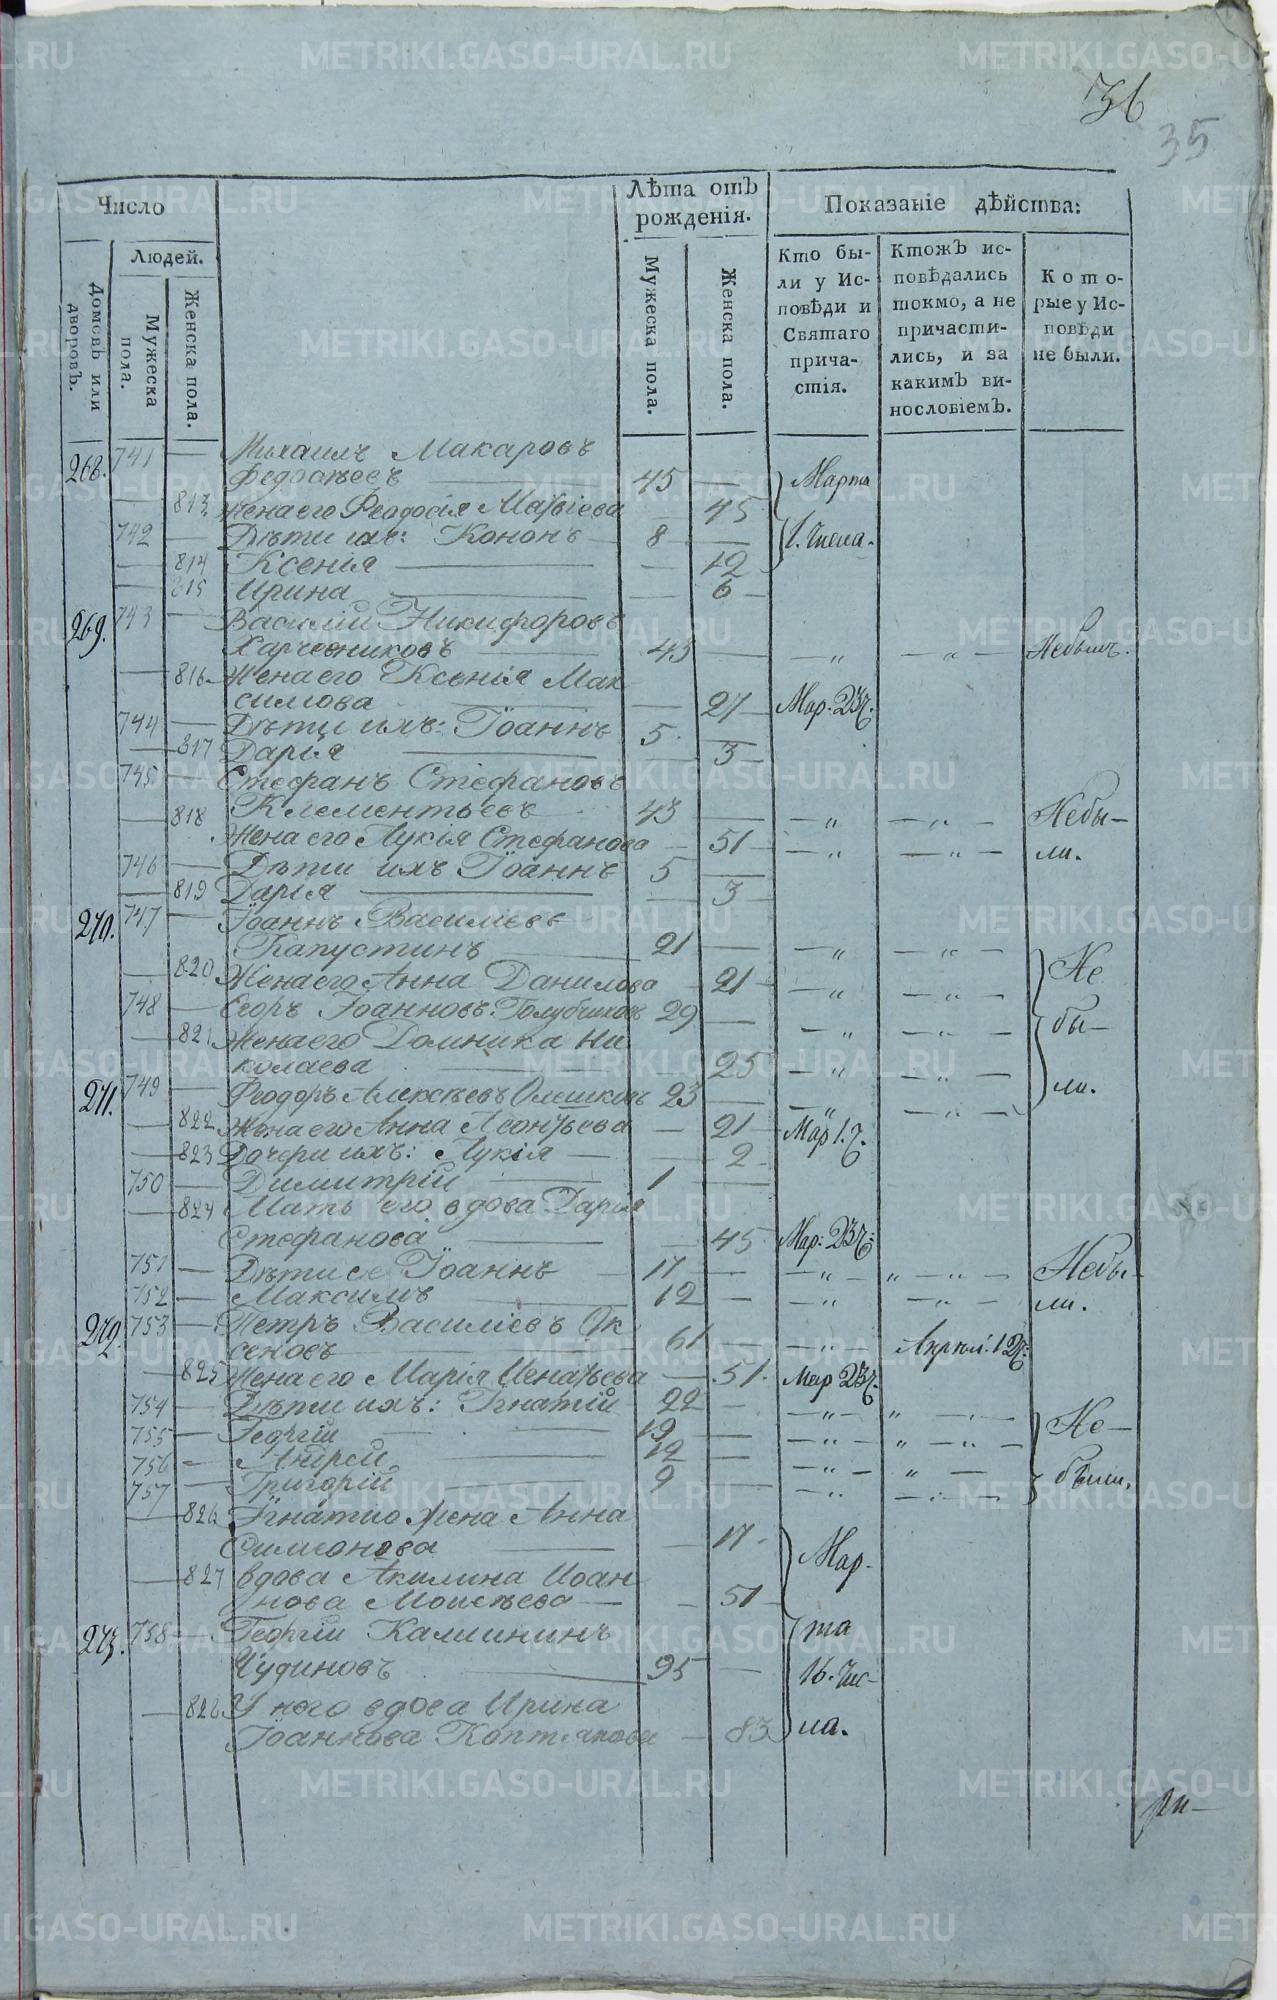 36
35
Число
Лѣта отъ
рожденія.
Показаніе дѣйства:
Людей.
Домовъ или дворовъ.
Мужеска пола.
Женска пола.
Мужеска пола.
Женска пола.
Кто бы-
ли у Ис-
повѣди и
Святаго
прича-
стія.
Ктожъ ис-
повѣдались
токмо, а не
причасти-
лись, и за
какимъ ви-
нословіемъ.
Кото-
рые у Ис-
повѣди
не были.
268. 741 — Михаилъ Макаровъ
Федосѣевъ — 45 — Марта
— 813. Жена его Феодосія Матвіева — 45
742 — Дѣти ихъ: Кононъ — 8 — 1. Числа.
— 814 Ксенія — 12
— 815 Ирина — 6
269. 743 — Василій Никифоровъ
Харчевниковъ — 43 — — „ — „ — Небылъ.
— 816 Жена его Ксенія Мак
симова — 27 — Мар. 23 ч.
744 — Дѣти ихъ: Іоаннъ 5 —
— 817 Дарія — 3
745 — Стефанъ Стефановъ
Клементьевъ 43 — — „ — „ — Небы—
— 818 Жена его Лукія Стефанова — 51 — „ — „ — ли.
746 — Дѣти ихъ Іоаннъ 5 —
— 819 Дарія — 3
270. 747 — Іоаннъ Василіевъ
Капустинъ — 21 — — „ — „ — Не
— 820 Жена его Анна Данилова — 21 — „ — „ —
748 — Егоръ Іоанновъ Голубчиковъ 29 — — „ — „ — бы—
— 821 Жена его Домника Ни
колаева — 25 — „ — „ — ли.
271. 749 — Феодоръ Алексѣевъ 23 — — „ — „ —
— 822 Жена его Анна Леонтьева — 21 — Мар 1. ч.
— 823 Дочери ихъ: Лукія — 2
750 — Димитрій — 1 —
— 824 Мать его вдова Дарія
Стефанова — 45 Мар: 23 ч:
751 — Дѣти ее Іоаннъ — 17 — — „ — „ — „ — Небы—
752 — Максимъ — 12 — — „ — „ — ли.
272. 753 — Петръ Василіевъ Ак
сеновъ — 61 — „ — Апрѣл. 12 ч:
— 825 Жена его Марія Игнатьева — 51. Мар 23 ч.
754 — Дѣти ихъ: Игнатій 22 — — „ — „ — Не—
755 — Георгій — 19 — — „ — „ — „ —
756 — Андрей — 12 — — „ — „ — были.
757 — Григорій — 9 — — „ — „ —
— 826 Игнатію жена Анна
Симеонова — 17. Мар-
— 827 вдова Акилина Иоан
нова Моисѣева — 51
273. 758 — Георгій Калининъ та
Чудиновъ — 95 — 16. Чис-
— 828 У ного вдова Ирина
Іоаннова — 83 ла.